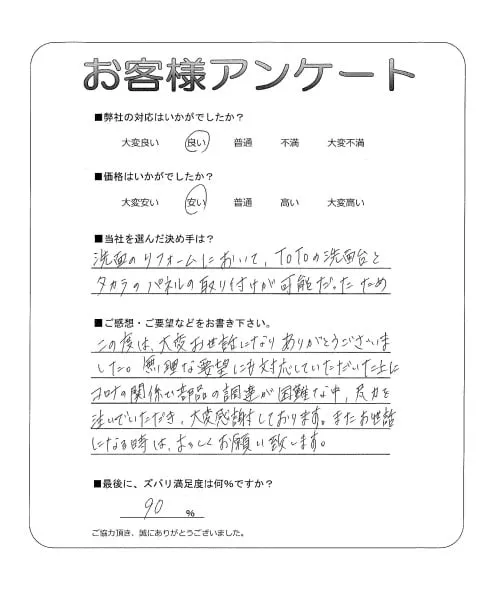 お客様アンケート
■弊社の対応はいかがでしたか？
大変良い 良い 普通 不満 大変不満
■価格はいかがでしたか？
大変安い 安い 普通 高い 大変高い
■当社を選んだ決め手は？
洗面のリフォームにおいて、TOTOの洗面台と
タカラのパネルの取り付けが可能だったため
■ご感想・ご要望などをお書き下さい。
この度は、大変お世話になりありがとうございま
した。無理な要望にも対応していただいた上に
コロナの関係で部品の調達が困難な中、尽力を
注いでいただき、大変感謝しております。またお世話
になる時は、よろしくお願い致します。
■最後に、ズバリ満足度は何％ですか？
90 ％
ご協力頂き、誠にありがとうございました。